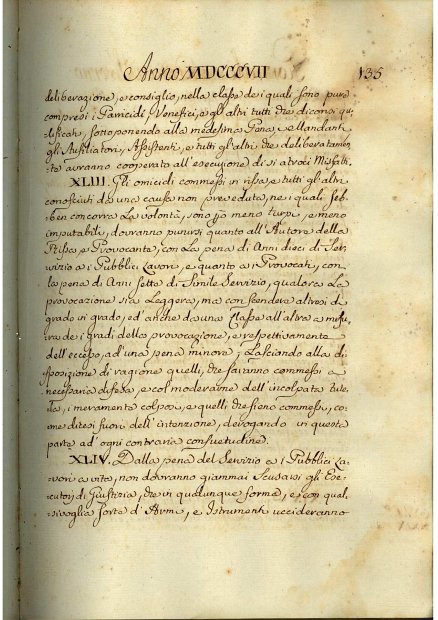 Anno MDCCCVII 135
deliberazione, e consiglio, nella classe de i quali sono pure
compresi i Parricidi, Venefici, e gl'altri tutti che diconsi qu-
lificati, sottoponendo alla medesima Pena, e Mandanti
gli Ausiliatori, Assistenti, e tutti gl'altri che deliberatamen-
te avranno cooperato all'esecuzione di si atroci Misfatti.
XLIII. Gli omicidi commessi in rissa, e tutti gl'altri
conosciuti da una causa non preveduta, ne i quali seb-
ben concorra la volontà, sono più meno turpi, e meno
imputabili, dovranno punirsi quanto all'Autore della
Rissa, e Provocante, con la pena di Anni dieci di Ser-
vizio a i Pubblici Lavori, e quanto a i Provocati, con
la pena di Anni sette di simile Servizio, qualora la
provocazione sia leggera, ma con scendere altresi di
grado in grado, ed anche da una Classe all'altra a misu-
ra de i gradi della provocazione, e respettivamente
dell'eccesso, ad una pena minore; Lasciando alla di-
sposizione di ragione quelli, che saranno commessi a
necessaria difesa, e col moderame dell'incolpata tute-
la, i meramente colposi, e quelli che sieno commessi, co-
me dicesi fuori dell'intenzione, derogando in questa
parte ad ogni contraria consuetudine.
XLIV. Dalla pena del Servizio a i Pubblici La-
vori a vita, non dovranno giammai scusarsi gli Ese-
cutori di Giustizia, che in qualunque forma, e con qual-
sivoglia sorte d'Armi, e Istrumenti uccideranno